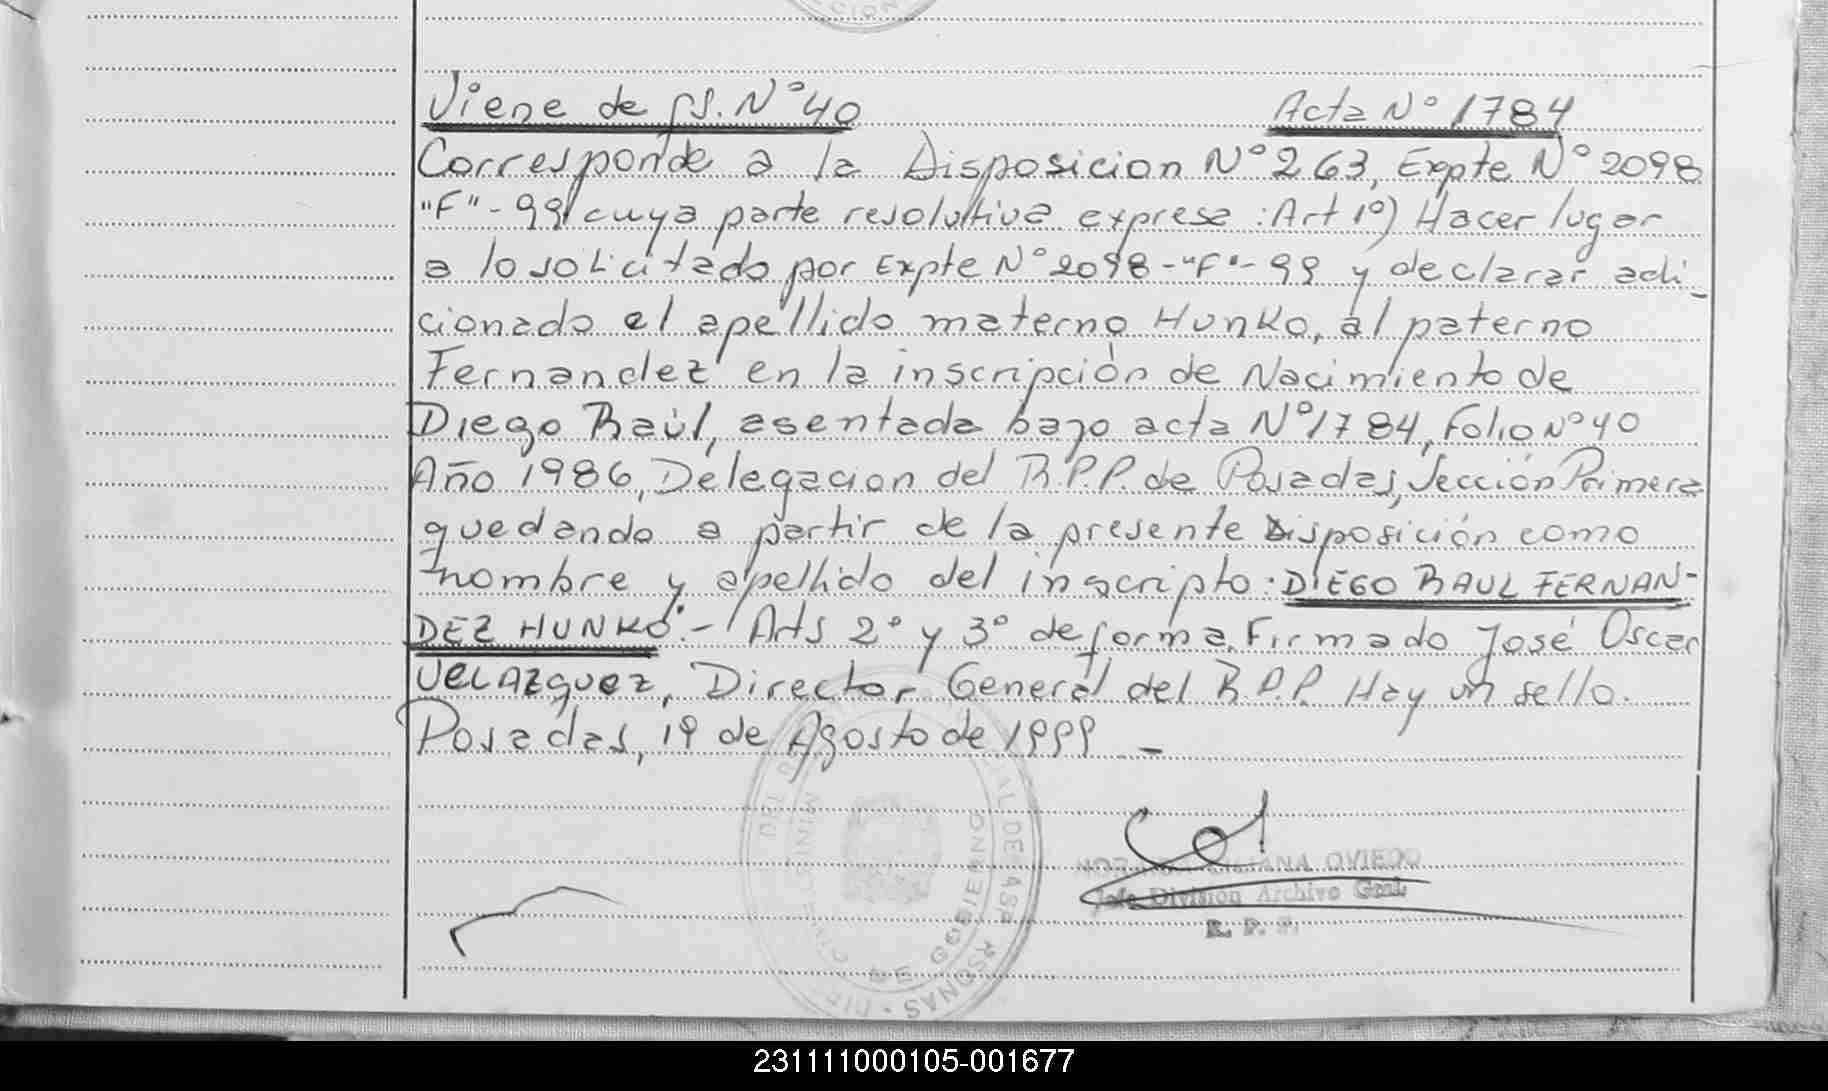 CION
Viene de fs. N° 40 Acta N° 1784
Corresponde a la Disposicion N° 263, Expte N° 2098
"F"-99 cuya parte resolutiva expresa: Art 1°) Hacer lugar
a lo solicitado por Expte N° 2098-"F"-99 y declarar adi-
cionado el apellido materno Hunko, al paterno
Fernandez en la inscripción de Nacimiento de
Diego Raúl, asentada bajo acta N° 1784, Folio N° 40
Año 1986, Delegacion del R.P.P. de Posadas, Sección Primera
quedando a partir de la presente Disposición como
nombre y apellido del inscripto: DIEGO RAUL FERNAN-
DEZ HUNKO.- Arts 2° y 3° de forma. Firmado José Oscar
VELAZQUEZ, Director General del R.P.P. Hay un sello.
Posadas, 19 de Agosto de 1999 -
DE GOBIERNO
OVIEDO
Jefe Division Archivo Gral.
R. P. P.
231111000105-001677